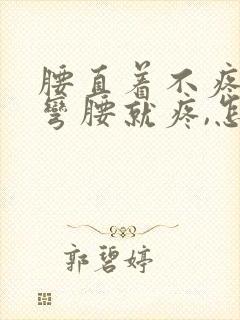 腰直着不疼
弯腰就疼,怎
郭碧婷